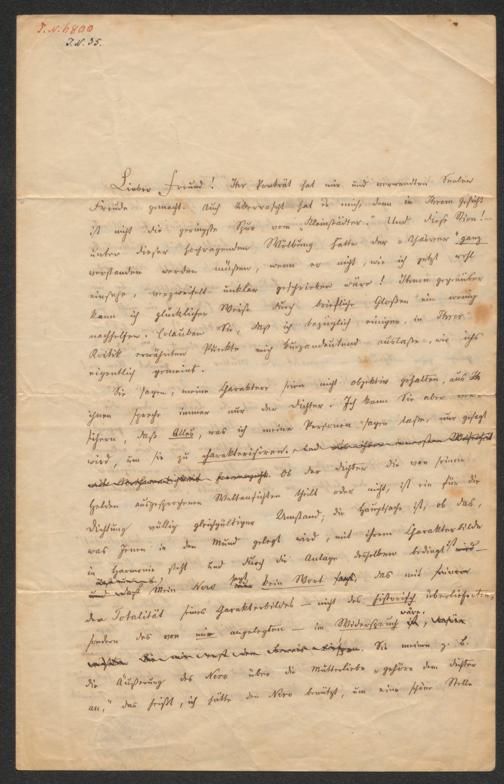 I. N. 6800
I. N. 35.
Lieber Freund! Ihr Porträt hat mir und verwandten Seelen
Freude gemacht. Auch überrascht hat es mich, denn in Ihrem Gesicht
ist nicht die geringste Spur vom „Kleinstädter." Und diese Stirn!
unter dieser hochragenden Wölbung hätte der „Ahasver" ganz
verstanden werden müssen, wenn er nicht, wie ich jetzt wohl
einsehe, verzweifelt unklar geschrieben wäre! Ihnen gegenüber
kann ich glücklicher Weise durch briefliche Glossen ein wenig
nachhelfen. Erlauben Sie, daß ich bezüglich einiger in Ihrer
Kritik erwähnten Punkte mich kurz andeutend auslasse, wie ichs
eigentlich gemeint.
Sie sagen, meine Charaktere seien nicht objektiv gehalten, aus
ihnen spreche immer nur der Dichter. Ich kann Sie aber ver-
sichern, daß Alles, was ich meine Personen sagen lasse, nur gesagt
wird, um sie zu charakterisiren.
Ob der Dichter die von seinen
Helden ausgesprochenen Weltansichten theilt oder nicht, ist ein für die
Dichtung völlig gleichgültiger Umstand; die Hauptsache ist, ob das,
was Jenen in den Mund gelegt wird, mit ihrem Charakterbilde
in Harmonie steht und durch die Anlage desselben bedingt ist
Mein Nero sagt kein Wort, das mit
der Totalität seines Charakterbildes — nicht des historisch überlieferten,
sondern des von mir angelegten — im Widerspruch wäre.
Sie meinen z. B.
die Äußerung des Nero über die Mutterliebe „gehöre dem Dichter
an," das heißt, ich hätte den Nero benützt, um eine schöne Stelle